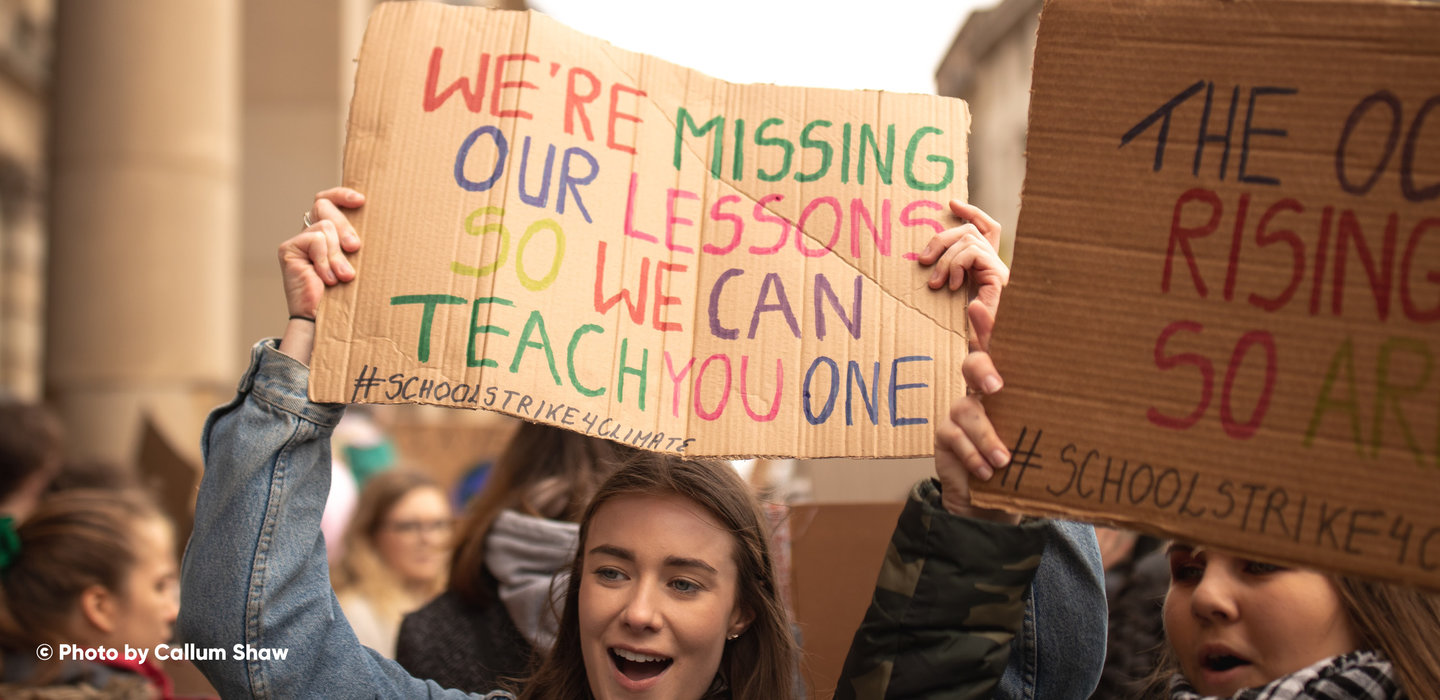 WE'RE MISSING
OUR LESSONS
SO WE CAN
TEACH YOU ONE
#SCHOOLSTRIKE4CLIMATE
THE
RISING
SO
#SCHOOLSTRIKE4C
© Photo by Callum Shaw